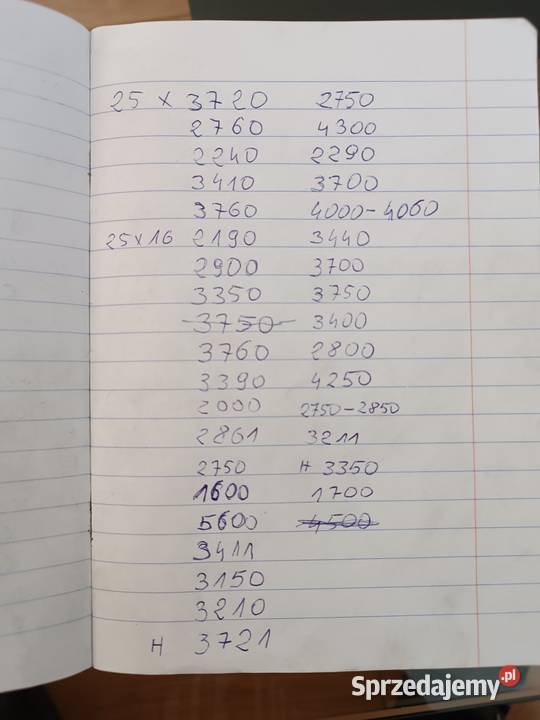 25 x 3720 2750
2760 4300
2240 2290
3410 3700
3760 4000-4060
25x16 2190 3440
2900 3700
3350 3750
3750 3400
3760 2800
3390 4250
2000 2750-2850
2861 3211
2750 H 3350
1600 1700
5600 4500
3411
3150
3210
H 3721
Sprzedajemy.pl